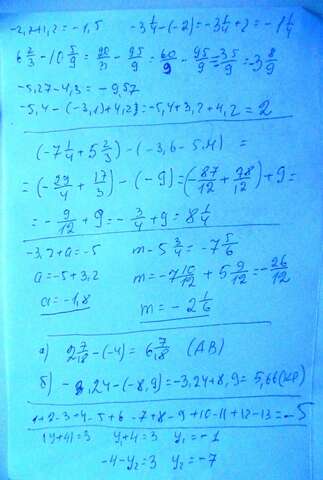 -2,7+1,2 = -1,5 -3 1/4-(-2)=-3 1/4+2 = -1 1/4
6 2/3 - 10 5/9 = 20/3 - 95/9 = 60/9 - 95/9 = -35/9 = -3 8/9
-5,27-4,3 = -9,57
-5,4-(-3,2)+4,2 = -5,4+3,2+4,2 = 2
(-7 1/4 + 5 2/3) - (-3,6-5,4) =
= (-29/4 + 17/3) - (-9) = (-87/12 + 78/12) + 9 =
= -9/12 + 9 = -3/4 + 9 = 8 1/4
-3,2+a = -5 m - 5 3/4 = -7 5/6
a = -5+3,2 m = -7 10/12 + 5 9/12 = -26/12
a = -1,8 m = -2 1/6
а) 2 7/18 - (-4) = 6 7/18 (АВ)
б) -3,24-(-8,9) = -3,24+8,9 = 5,66 (КР)
1+2-3+4-5+6-7+8-9+10-11+12-13 = -5
|y+4|=3 y₁+4=3 y₁=-1
-4-y₂=3 y₂=-7